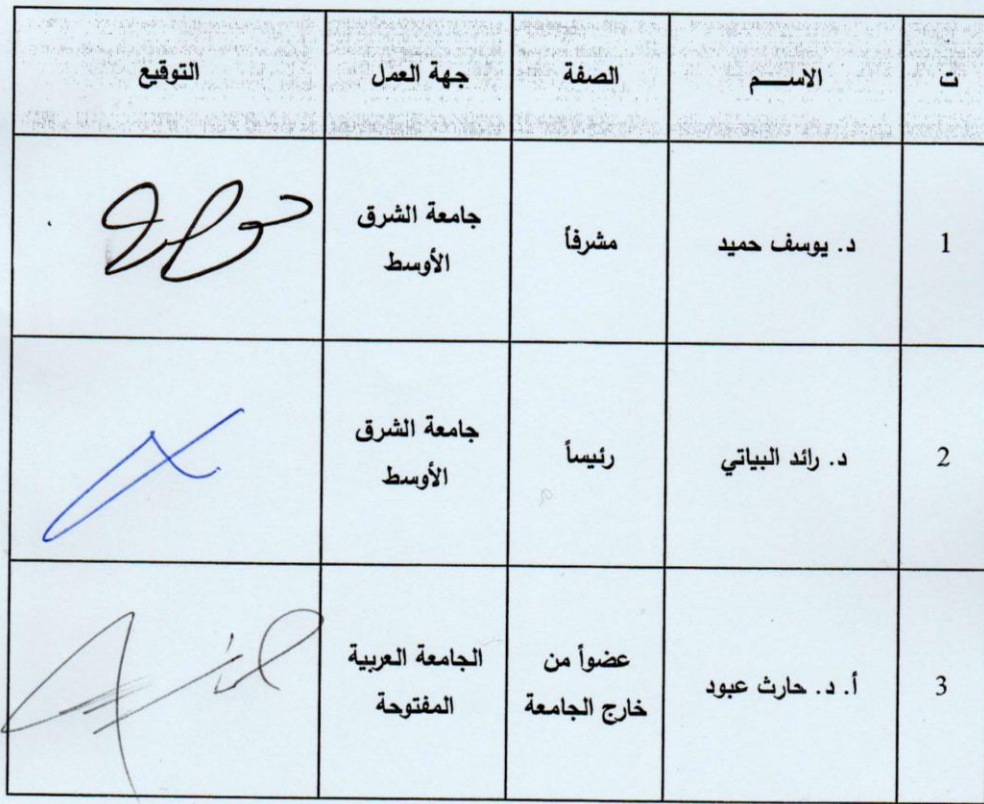 ت الاســـم الصفة جهة العمل التوقيع
1 د. يوسف حميد مشرفاً جامعة الشرق
الأوسط
2 د. رائد البياتي رئيساً جامعة الشرق
الأوسط
3 أ. د. حارث عبود عضواً من الجامعة العربية
خارج الجامعة المفتوحة